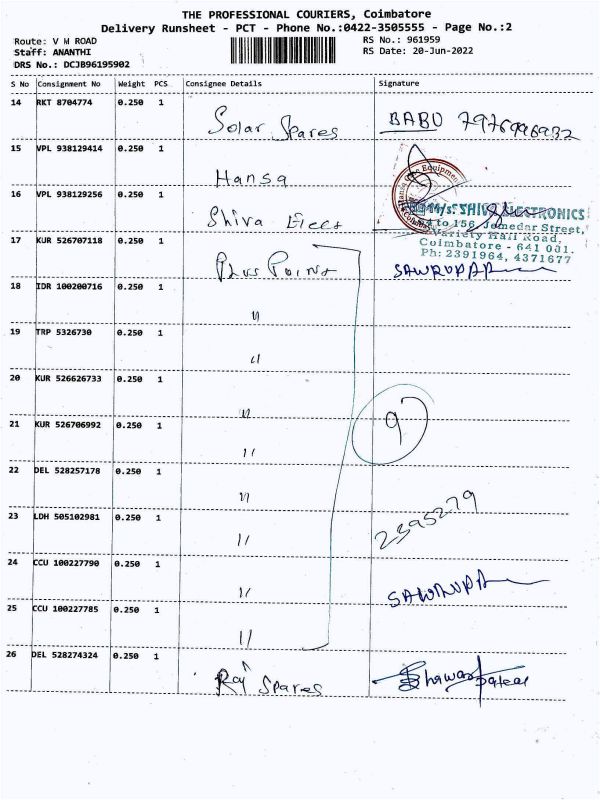 THE PROFESSIONAL COURIERS, Coimbatore
Delivery Runsheet - PCT - Phone No.:0422-3505555 - Page No.:2
Route: V M ROAD
Staff: ANANTHI
DRS No.: DCJB96195902
RS No.: 961959
RS Date: 20-Jun-2022
S No Consignment No Weight PCS Consignee Details Signature
14 RKT 8704774 0.250 1 Solar Spares BABU
15 VPL 938129414 0.250 1 Hansa
16 VPL 938129256 0.250 1 Shiva Elecs
M/s. SHIVA ELECTRONICS
to 156, Jomedar Street,
Variety Hall Road,
Coimbatore - 641 001.
Ph: 2391964, 4371677
17 KUR 526707118 0.250 1 Plus Point
18 IDR 100200716 0.250 1 "
19 TRP 5326730 0.250 1 "
20 KUR 526626733 0.250 1 "
21 KUR 526706992 0.250 1 " 9
22 DEL 528257178 0.250 1 "
23 LDH 505102981 0.250 1 " 2395279
24 CCU 100227790 0.250 1 "
25 CCU 100227785 0.250 1 "
26 DEL 528274324 0.250 1 Raj Spares